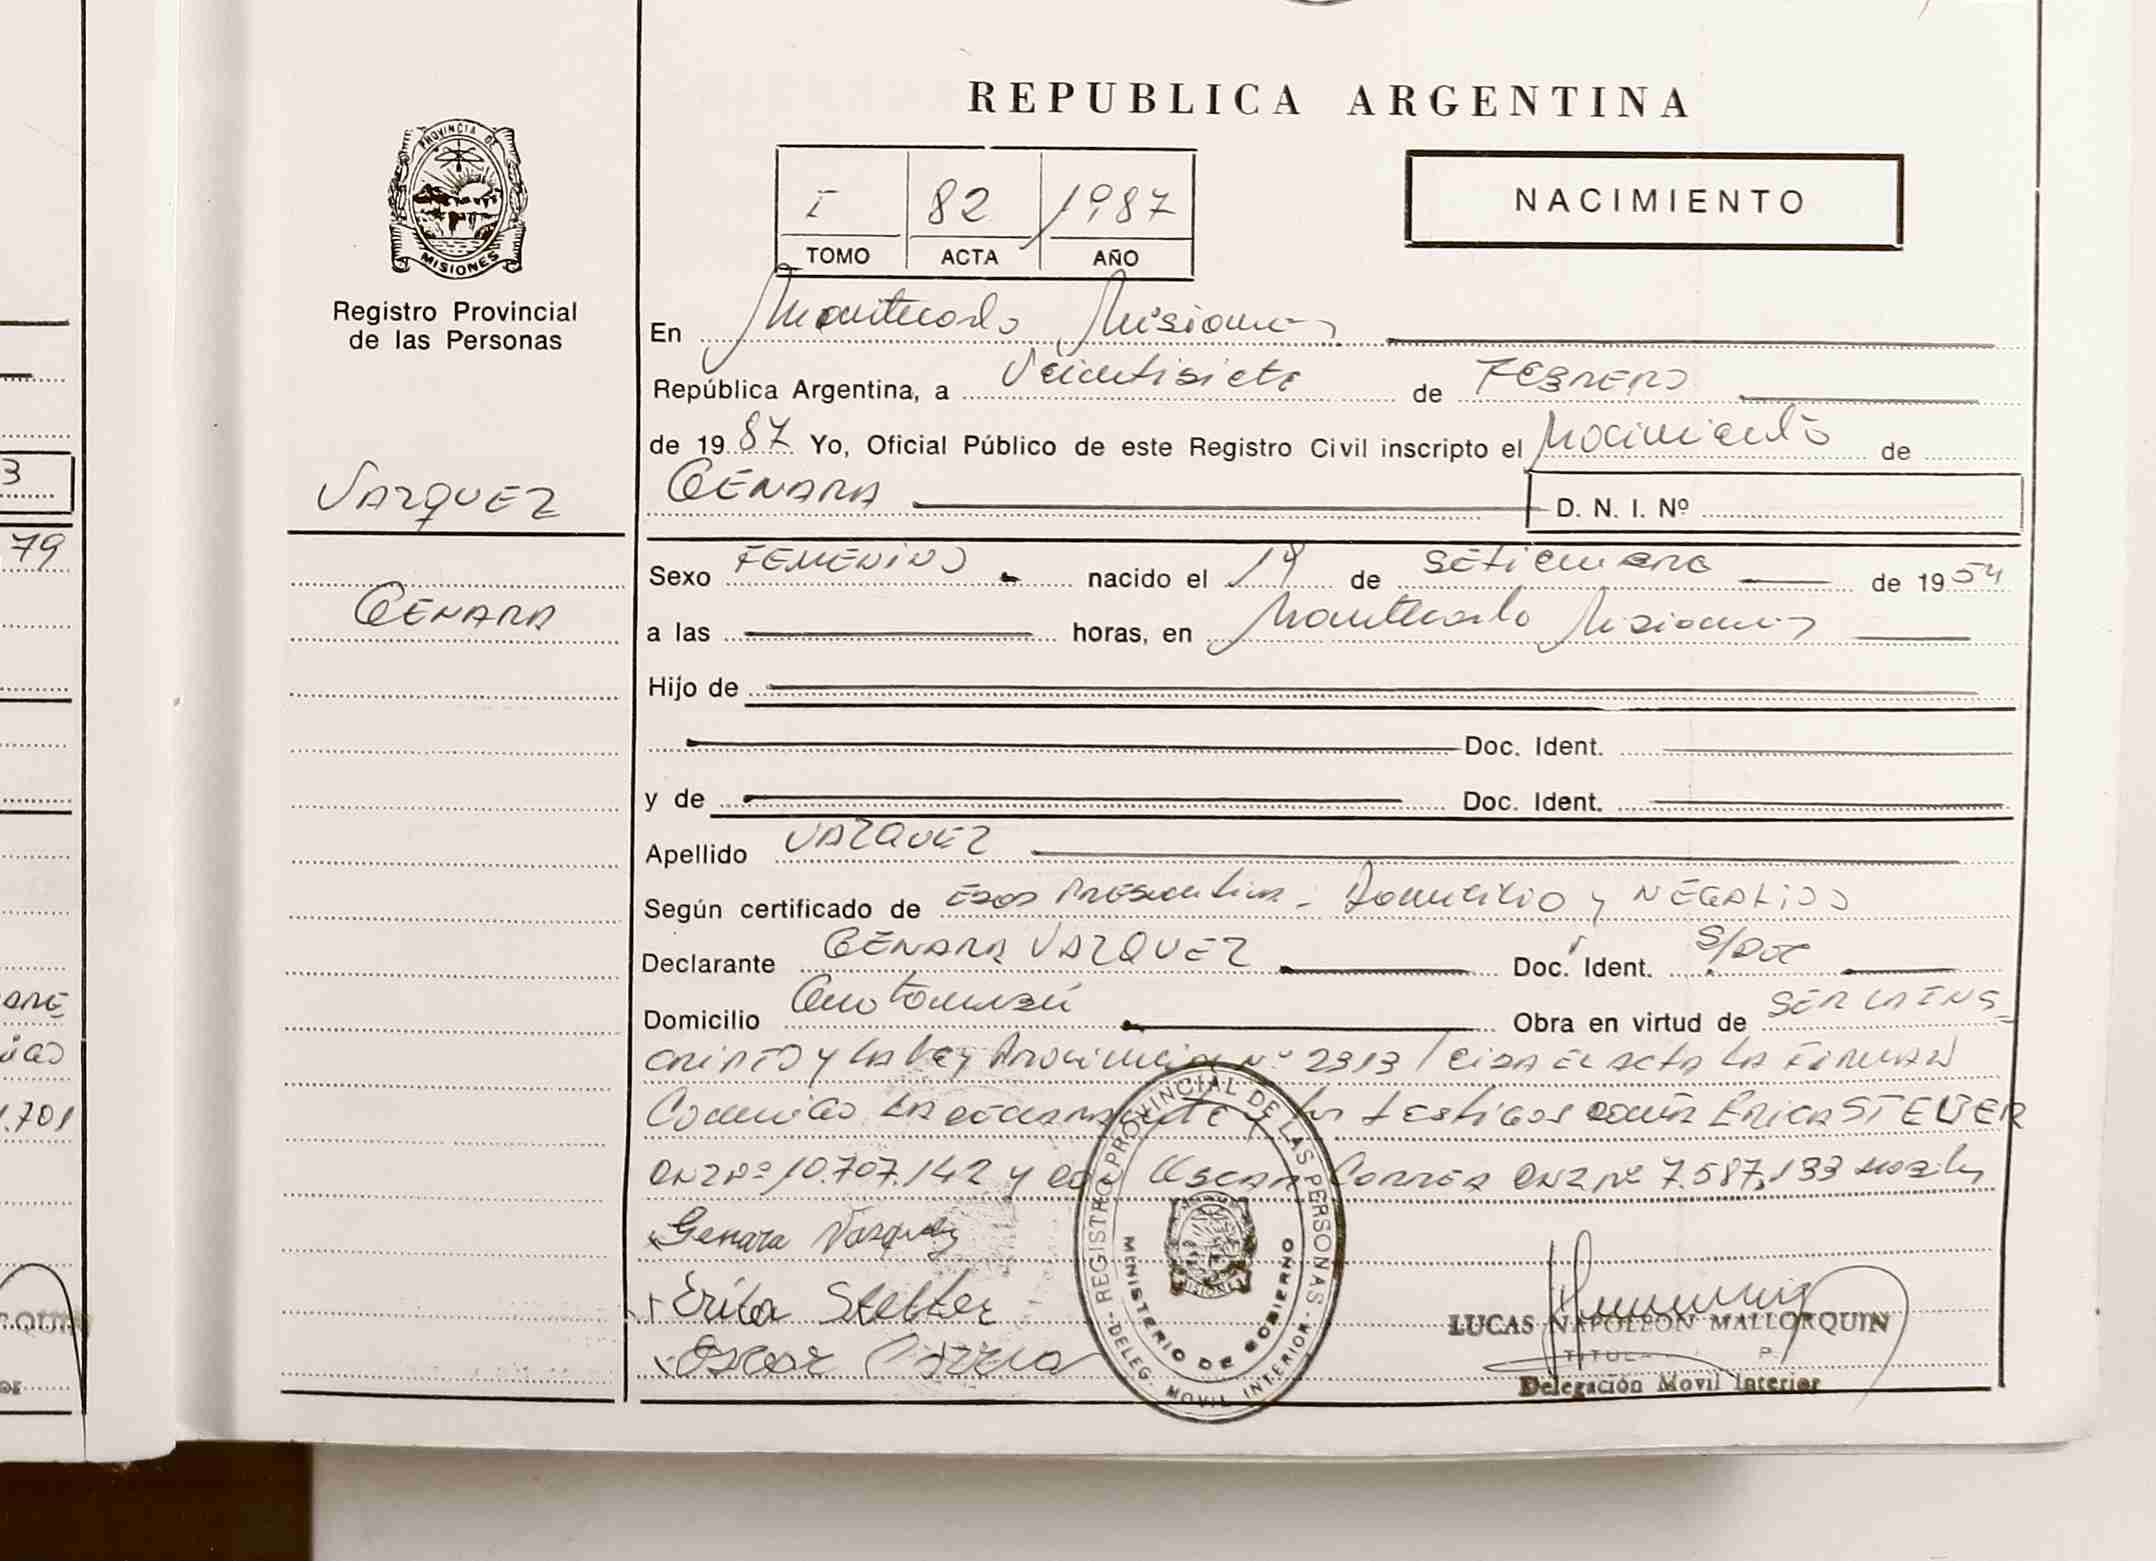 REPUBLICA ARGENTINA
PROVINCIA DE
MISIONES
Registro Provincial
de las Personas
I 82 1987
TOMO ACTA AÑO
NACIMIENTO
En Montecarlo Misiones
República Argentina, a Veintisiete de FEBRERO
de 1987 Yo, Oficial Público de este Registro Civil inscripto el Nacimiento de
GENARA D. N. I. Nº
VAZQUEZ
GENARA
Sexo FEMENINO nacido el 14 de SETIEMBRE de 1954
a las horas, en Montecarlo Misiones
Hijo de
Doc. Ident.
y de Doc. Ident.
Apellido VAZQUEZ
Según certificado de Domicilio y NEGATIVO
Declarante GENARA VAZQUEZ Doc. Ident. S/DOC
Domicilio Obra en virtud de SER LA INS
CRIPTO y LA Ley Provincial Nº 2313 EL ACTA LA FIRMAN
Conmigo LA DECLARANTE y los testigos doña ERICA STELTER
DNI Nº 10.707.142 y don OSCAR CORREA DNI Nº 7.587.133
Genara Vazquez
Erika Stelter
Oscar Correa
REGISTRO PROVINCIAL DE LAS PERSONAS
MINISTERIO DE GOBIERNO
DELEG. MOVIL INTERIOR
LUCAS NAPOLEON MALLORQUIN
Delegación Movil Interior
3
79
.701